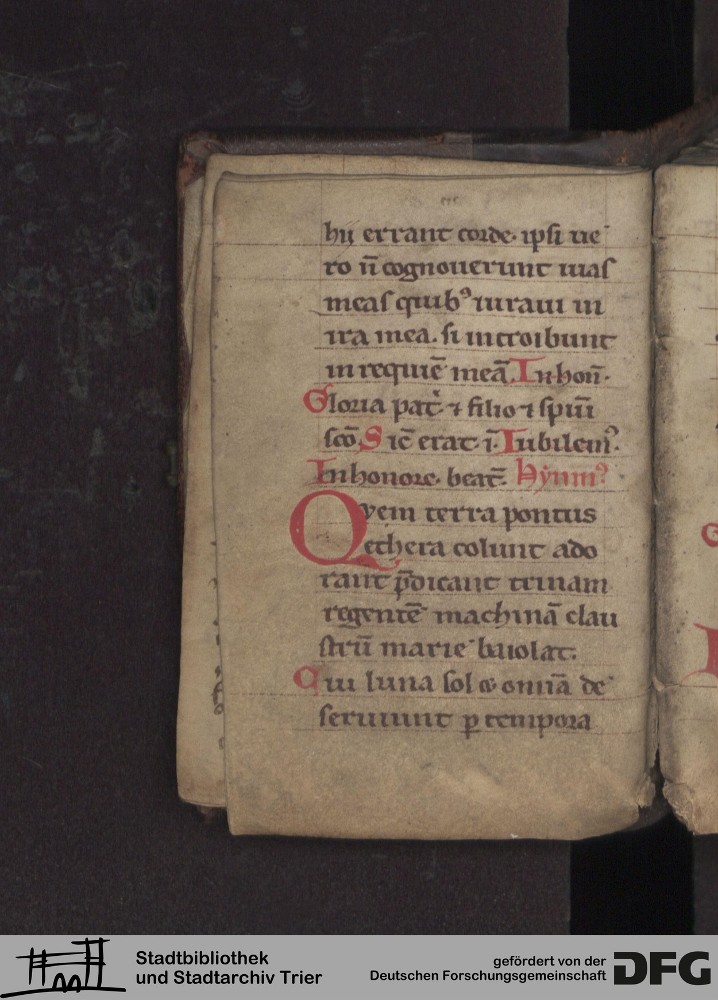 hij errant corde. ipsi ue
ro n̄ cognouerunt uias
meas quib⁹ iuraui in
ira mea. si introibunt
in requiē meā. In hon̄.
Gloria pat̄. ⁊ filio ⁊ spūi
scō. Sic̄ erat. ī. Iubilem⁹.
In honore. beat̄. Hÿmn⁹
Qvem terra pontus
ethera colunt ado
rant p̄dicant trinam
regentē machinā clau
strū marie baiolat.
Cui luna sol & omīa de
seruiunt ꝑ tempora
Stadtbibliothek
und Stadtarchiv Trier
gefördert von der
Deutschen Forschungsgemeinschaft
DFG